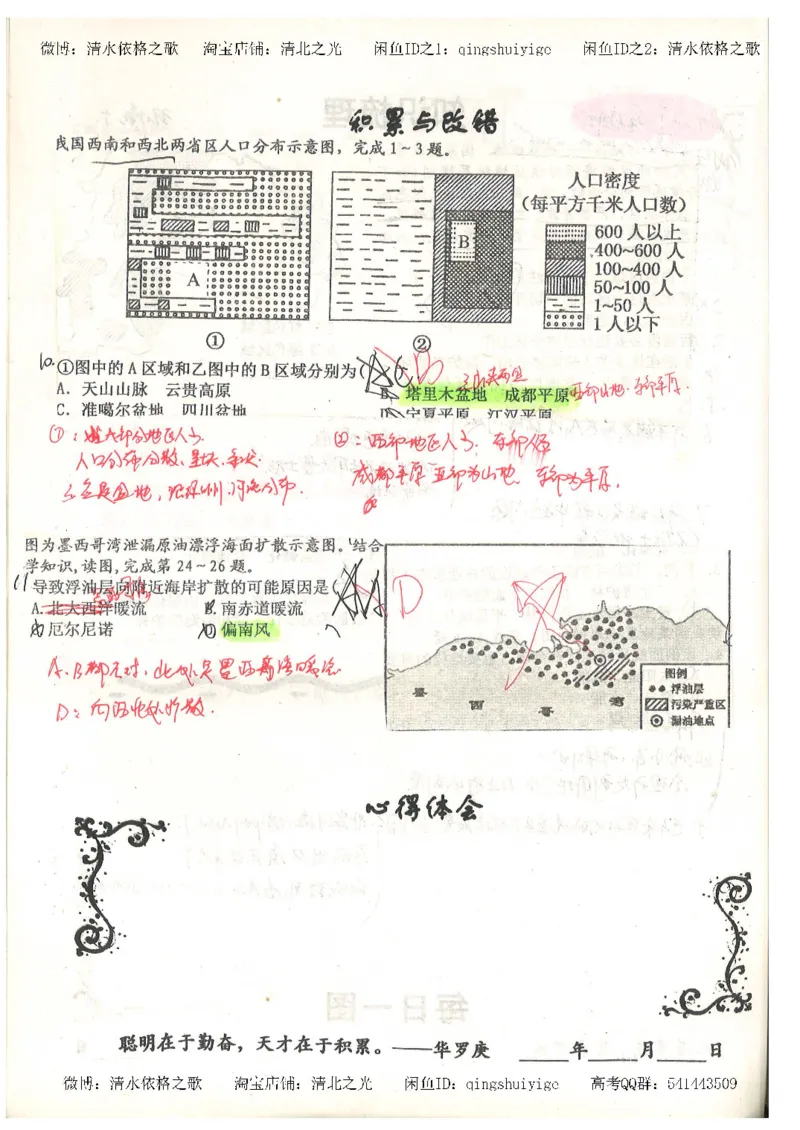 微博：清水依格之歌 淘宝店铺：清北之光 闲鱼ID之1：qingshuiyige 闲鱼ID之2：清水依格之歌
积累与改错
我国西南和西北两省区人口分布示意图，完成1～3题。
人口密度
（每平方千米人口数）
600 人以上
400~600 人
100~400 人
50~100 人
1~50 人
1 人以下
A
B
①
②
10.①图中的 A 区域和乙图中的 B 区域分别为
A. 天山山脉 云贵高原
B. 塔里木盆地 成都平原
C. 准噶尔盆地 四川盆地
D. 宁夏平原 江汉平原
西部山地 东部平原.
成都平原 西部为山地 东部为平原.
图为墨西哥湾泄漏原油漂浮海面扩散示意图。结合
学知识，读图，完成第 24～26 题。
11 导致浮油层向附近海岸扩散的可能原因是
A. 北大西洋暖流 B. 南赤道暖流
厄尔尼诺 D 偏南风
D
A. B都不对，此处是墨西哥湾暖流
D：向西北处扩散.
墨 西 哥 湾
图例
浮油层
污染严重区
漏油地点
心得体会
聪明在于勤奋，天才在于积累。——华罗庚 ____年____月____日
微博：清水依格之歌 淘宝店铺：清北之光 闲鱼ID：qingshuiyige 高考QQ群：541443509